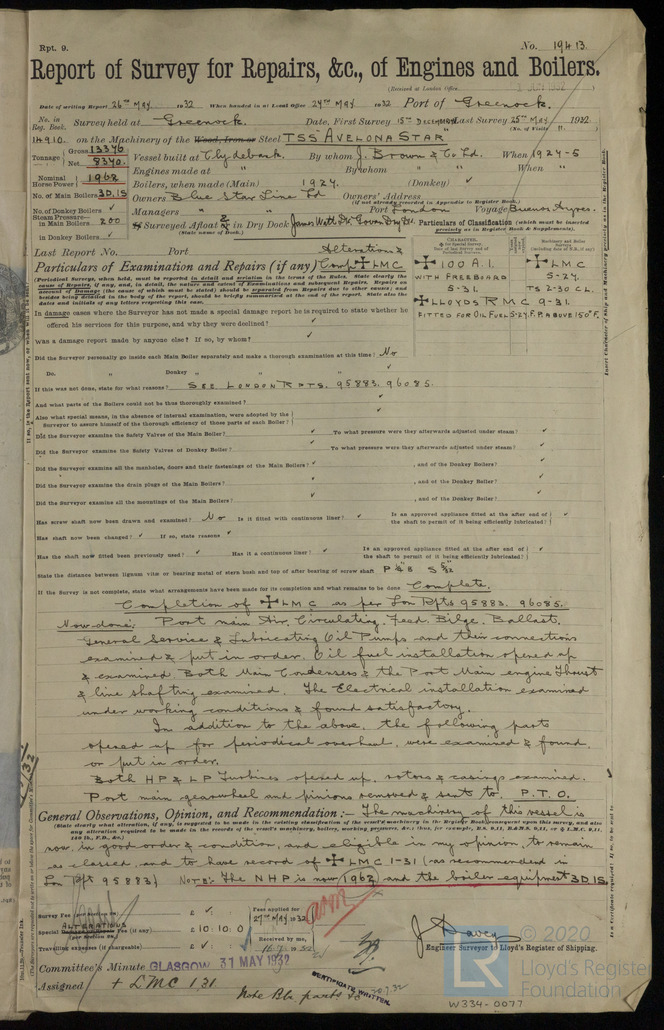 Rpt. 9.
No. 19413.
Report of Survey for Repairs, &c., of Engines and Boilers.
(Received at London Office
Date of writing Report 26TH MAY 1932 When handed in at Local Office 27TH MAY 1932 Port of Greenock.
No. in Reg. Book. Survey held at Greenock. Date, First Survey 15TH DECEMBER Last Survey 25TH MAY 1932
(No. of Visits 11.)
14910. on the Machinery of the Wood, Iron or Steel TSS "AVELONA STAR"
Tonnage Gross 13376 Net 8340. Vessel built at Clydebank. By whom J. Brown & Co Ltd. When 1924-5
Nominal Horse Power 1962 Engines made at " By whom " When "
No. of Main Boilers 3D,1S Boilers, when made (Main) 1927. (Donkey) ✓
Owners Blue Star Line Ltd Owners' Address
(if not already recorded in Appendix to Register Book.)
No. of Donkey Boilers ✓ Managers Port London Voyage Buenos Ayres.
Steam Pressure— in Main Boilers 200 If Surveyed Afloat & in Dry Dock James Watt Dk Govan Dry Dk.
(State name of Dock.)
in Donkey Boilers ✓
Particulars of Classification (which must be inserted precisely as in Register Book & Supplements).
Last Report No. Port
Alterations
Particulars of Examination and Repairs (if any) Comp ✠ LMC
✠ 100 A.1.
WITH FREEBOARD
5-31.
✠ LLOYDS RMC 9-31.
FITTED FOR OIL FUEL 5-27. F.P. ABOVE 150°F.
✠ LMC
5-27.
TS 2-30 CL.
In damage cases where the Surveyor has not made a special damage report he is required to state whether he
offered his services for this purpose, and why they were declined? ✓
Was a damage report made by anyone else? If so, by whom? ✓
Did the Surveyor personally go inside each Main Boiler separately and make a thorough examination at this time? No
Do. " Donkey " " " "
If this was not done, state for what reasons? SEE LONDON RPTS. 95883. 96085.
And what parts of the Boilers could not be thus thoroughly examined? ✓
Also what special means, in the absence of internal examination, were adopted by the
Surveyor to assure himself of the thorough efficiency of those parts of each Boiler? ✓
Did the Surveyor examine the Safety Valves of the Main Boiler? ✓ To what pressure were they afterwards adjusted under steam? ✓
Did the Surveyor examine the Safety Valves of Donkey Boiler? ✓ To what pressure were they afterwards adjusted under steam? ✓
Did the Surveyor examine all the manholes, doors and their fastenings of the Main Boilers? ✓ , and of the Donkey Boilers? ✓
Did the Surveyor examine the drain plugs of the Main Boilers? ✓ , and of the Donkey Boilers? ✓
Did the Surveyor examine all the mountings of the Main Boilers? ✓ , and of the Donkey Boilers? ✓
Has screw shaft now been drawn and examined? No Is it fitted with continuous liner? ✓ Is an approved appliance fitted at the after end of the shaft to permit of it being efficiently lubricated? ✓
Has shaft now been changed? ✓ If so, state reasons ✓
Has the shaft now fitted been previously used? ✓ Has it a continuous liner? ✓ Is an approved appliance fitted at the after end of the shaft to permit of it being efficiently lubricated? ✓
State the distance between lignum vitæ or bearing metal of stern bush and top of after bearing of screw shaft
If the Survey is not complete, state what arrangements have been made for its completion and what remains to be done Complete.
Completion of ✠ LMC as per Lon Rpts 95883. 96085.
Now done: Port main Air, Circulating, Feed, Bilge, Ballast,
General Service & Lubricating Oil Pumps and their connections
examined & put in order. Oil fuel installation opened up
& examined. Both Main Condensers & the Port Main engine Thrust
& line shafting examined. The Electrical installation examined
under working conditions & found satisfactory.
In addition to the above, the following parts
opened up for periodical overhaul, were examined & found
or put in order.
Both HP & LP Turbines opened up, rotors & casings examined.
Port main gearwheel and pinions removed & sent to P.T.O.
General Observations, Opinion, and Recommendation:— The machinery of this vessel is
(State clearly what alteration, if any, is suggested to be made in the existing classification of the vessel's machinery in the Register Book consequent upon this survey, and also
any alteration required to be made in the records of the vessel's machinery, boilers, working pressures, &c.; thus, for example, B.S. 9,11, B.&M.S. 9,11, or ✠ L.M.C. 9,11,
140 lb., F.D., &c.)
now in good order & condition, and eligible in my opinion, to remain
as classed and to have record of ✠ LMC 1-31 (as recommended in
Lon Rpt 95883) NOTE: The NHP is now 1962 and the boiler equipment 3D,1S
Survey Fee £ ✓
ALTERATIONS
Special Fee (if any) £ 10.10.0
Travelling expenses (if chargeable) £ ✓
Fees applied for
27TH MAY 1932
Received by me,
J. Davey
Engineer Surveyor to Lloyd's Register of Shipping.
Committee's Minute GLASGOW 31 MAY 1932
Assigned + LMC 1.31
CERTIFICATE WRITTEN
© 2020
Lloyd's Register
Foundation
W334-0077